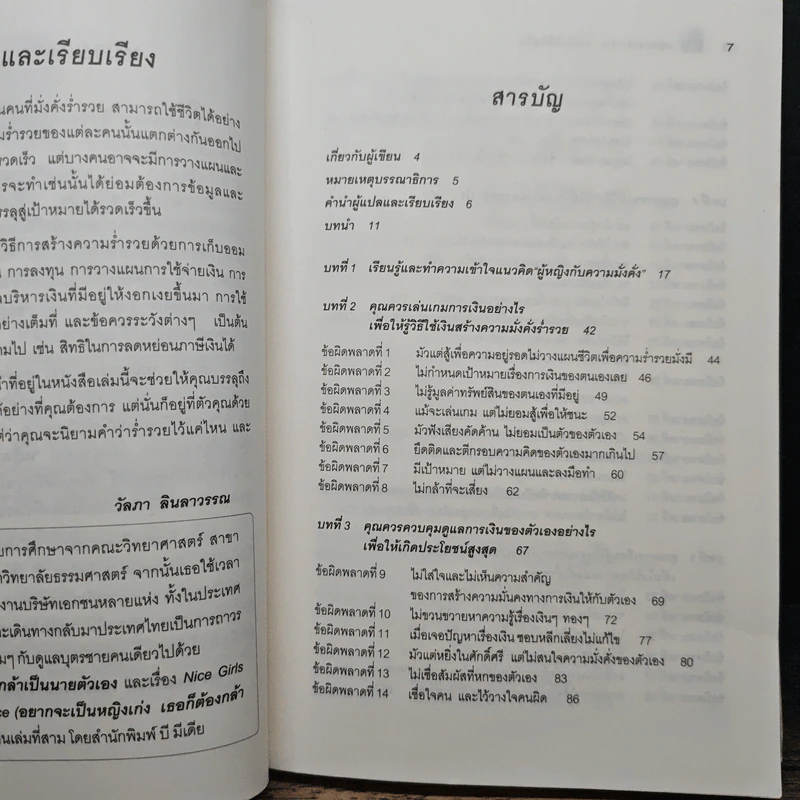 และเรียบเรียง
นคนที่มั่งคั่งร่ำรวย สามารถใช้ชีวิตได้อย่าง
มร่ำรวยของแต่ละคนนั้นแตกต่างกันออกไป
รวดเร็ว แต่บางคนอาจจะมีการวางแผนและ
รจะทำเช่นนั้นได้ย่อมต้องการข้อมูลและ
รรลุสู่เป้าหมายได้รวดเร็วขึ้น
วิธีการสร้างความร่ำรวยด้วยการเก็บออม
การลงทุน การวางแผนการใช้จ่ายเงิน การ
ลบริหารเงินที่มีอยู่ให้งอกเงยขึ้นมา การใช้
ย่างเต็มที่ และข้อควรระวังต่างๆ เป็นต้น
ามไป เช่น สิทธิในการลดหย่อนภาษีเงินได้
ำที่อยู่ในหนังสือเล่มนี้จะช่วยให้คุณบรรลุถึง
ด้อย่างที่คุณต้องการ แต่นั่นก็อยู่ที่ตัวคุณด้วย
ต่ว่าคุณจะนิยามคำว่าร่ำรวยไว้แค่ไหน และ
วัลภา ลินลาวรรณ
บการศึกษาจากคณะวิทยาศาสตร์ สาขา
าวิทยาลัยธรรมศาสตร์ จากนั้นเธอใช้เวลา
งานบริษัทเอกชนหลายแห่ง ทั้งในประเทศ
ะเดินทางกลับมาประเทศไทยเป็นการถาวร
มๆ กับดูแลบุตรชายคนเดียวไปด้วย
กล้าเป็นนายตัวเอง และเรื่อง Nice Girls
ce (อยากจะเป็นหญิงเก่ง เธอก็ต้องกล้า
นเล่มที่สาม โดยสำนักพิมพ์ บี มีเดีย
7
สารบัญ
เกี่ยวกับผู้เขียน 4
หมายเหตุบรรณาธิการ 5
คำนำผู้แปลและเรียบเรียง 6
บทนำ 11
บทที่ 1 เรียนรู้และทำความเข้าใจแนวคิด"ผู้หญิงกับความมั่งคั่ง" 17
บทที่ 2 คุณควรเล่นเกมการเงินอย่างไร
เพื่อให้รู้วิธีใช้เงินสร้างความมั่งคั่งร่ำรวย 42
ข้อผิดพลาดที่ 1 มัวแต่สู้เพื่อความอยู่รอดไม่วางแผนชีวิตเพื่อความร่ำรวยมั่งมี 44
ข้อผิดพลาดที่ 2 ไม่กำหนดเป้าหมายเรื่องการเงินของตนเองเลย 46
ข้อผิดพลาดที่ 3 ไม่รู้มูลค่าทรัพย์สินของตนเองที่มีอยู่ 49
ข้อผิดพลาดที่ 4 แม้จะเล่นเกม แต่ไม่ยอมสู้เพื่อให้ชนะ 52
ข้อผิดพลาดที่ 5 มัวฟังเสียงคัดค้าน ไม่ยอมเป็นตัวของตัวเอง 54
ข้อผิดพลาดที่ 6 ยึดติดและตีกรอบความคิดของตัวเองมากเกินไป 57
ข้อผิดพลาดที่ 7 มีเป้าหมาย แต่ไม่วางแผนและลงมือทำ 60
ข้อผิดพลาดที่ 8 ไม่กล้าที่จะเสี่ยง 62
บทที่ 3 คุณควรควบคุมดูแลการเงินของตัวเองอย่างไร
เพื่อให้เกิดประโยชน์สูงสุด 67
ข้อผิดพลาดที่ 9 ไม่ใส่ใจและไม่เห็นความสำคัญ
ของการสร้างความมั่นคงทางการเงินให้กับตัวเอง 69
ข้อผิดพลาดที่ 10 ไม่ขวนขวายหาความรู้เรื่องเงินๆ ทองๆ 72
ข้อผิดพลาดที่ 11 เมื่อเจอปัญหาเรื่องเงิน ชอบหลีกเลี่ยงไม่แก้ไข 77
ข้อผิดพลาดที่ 12 มัวแต่หยิ่งในศักดิ์ศรี แต่ไม่สนใจความมั่งคั่งของตัวเอง 80
ข้อผิดพลาดที่ 13 ไม่เชื่อสัมผัสที่หกของตัวเอง 83
ข้อผิดพลาดที่ 14 เชื่อใจคน และไว้วางใจคนผิด 86